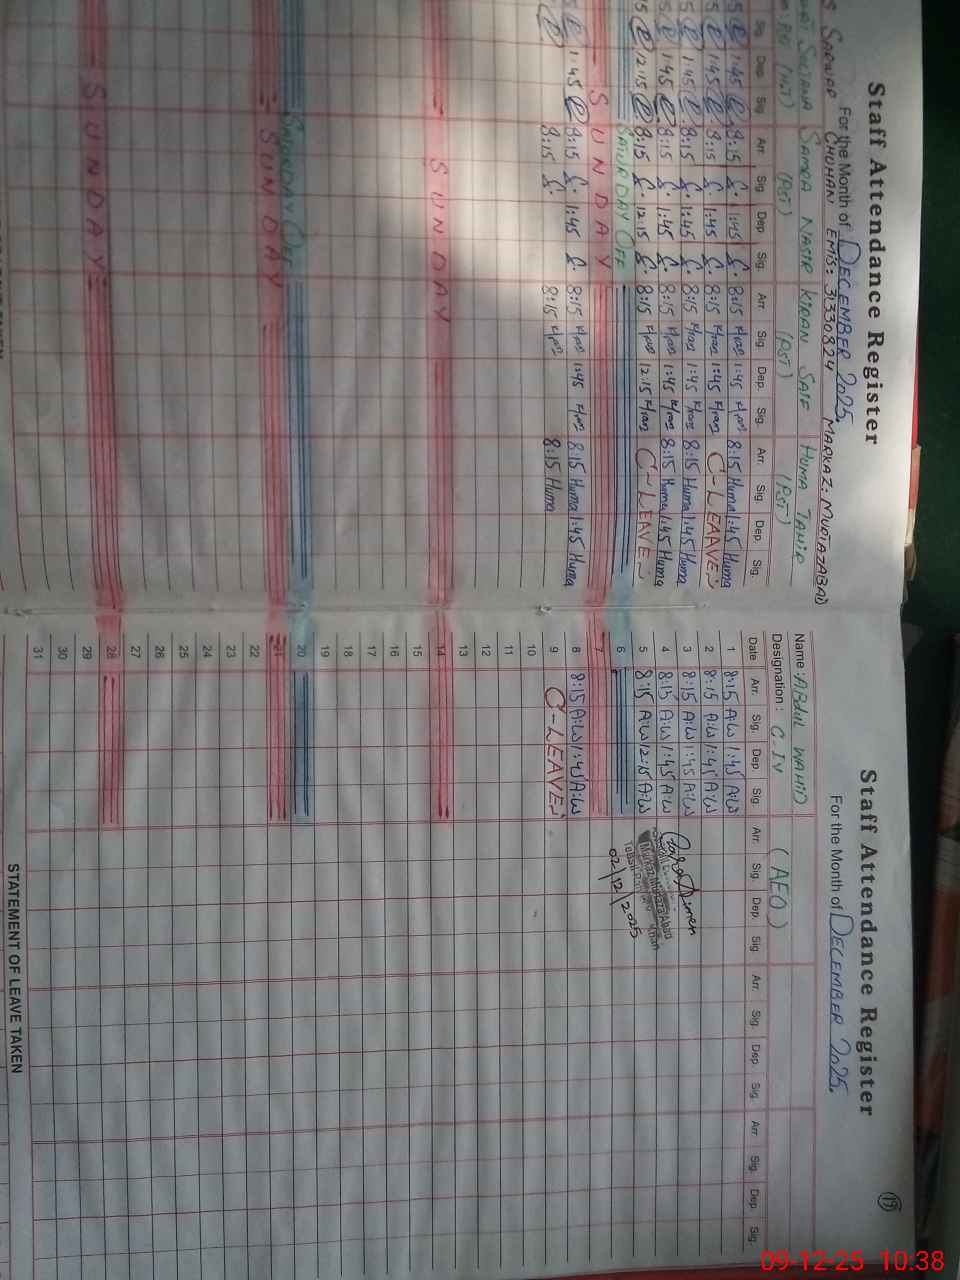 Staff Attendance Register
For the Month of DECEMBER 2025.
SARWAR CHUHAN EMIS: 31330824 MARKAZ: MURTAZABAD
SAMRA NASIR KIRAN SAIF HUMA TAHIR
(PST) (PST) (PST)
Sig. Dep. Sig. Arr. Sig. Dep. Sig. Arr. Sig. Dep. Sig. Arr. Sig. Dep. Sig.
1:45 8:15 1:45 8:15 Kiran 1:45 Kiran 8:15 Huma 1:45 Huma
1:45 8:15 1:45 8:15 Kiran 1:45 Kiran C-LEAAVEN
1:45 8:15 1:45 8:15 Kiran 1:45 Kiran 8:15 Huma 1:45 Huma
1:45 8:15 1:45 8:15 Kiran 1:45 Kiran 8:15 Huma 1:45 Huma
12:15 8:15 12:15 8:15 Kiran 12:15 Kiran C-LEAVEN
SATURDAY OFF
SUNDAY
1:45 8:15 1:45 8:15 Kiran 1:45 Kiran 8:15 Huma 1:45 Huma
8:15 8:15 Kiran 8:15 Huma
SUNDAY
SATURDAY OFF
SUNDAY
SUNDAY
Staff Attendance Register
For the Month of DECEMBER 2025.
19
Name: ABDUL WAHID
Designation: C-IV (AEO)
Date Arr. Sig. Dep. Sig. Arr. Sig. Dep. Sig. Arr. Sig. Dep. Sig. Arr. Sig. Dep. Sig.
1 8:15 A:W 1:45 A:W
2 8:15 A:W 1:45 A:W
3 8:15 A:W 1:45 A:W
4 8:15 A:W 1:45 A:W
5 8:15 A:W 12:15 A:W
6
7
8 8:15 A:W 1:45 A:W
9 C-LEAVEN
10
11
12
13
14
15
16
17
18
19
20
21
22
23
24
25
26
27
28
29
30
31
02/12/2025
STATEMENT OF LEAVE TAKEN
09-12-25 10:38